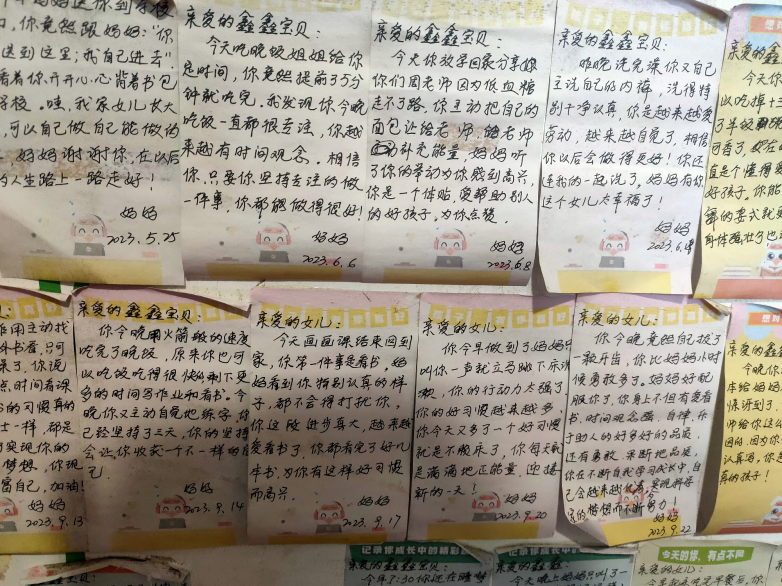 你竟然跟妈妈：“你
送到这里，我自己进去”
看着你开开心心背着书包
学校。哇，我家女儿长大
可以自己做自己能做的
妈妈谢谢你，在以后
的人生路上一路走好！
妈妈
2023.5.25
亲爱的鑫鑫宝贝：
今天吃晚饭姐姐给你
定时间，你竟然提前了5分
钟就吃完。我发现你今晚
吃饭一直都很专注，你越
来越有时间观念。相信
你，只要你坚持专注的做
一件事，你都能做得很好！
妈妈
2023.6.6
亲爱的鑫鑫宝贝：
今天你放学回家分享
你们周老师因为低血糖
走不了路，你主动把自己的
面包让给老师，给老师
补充能量，妈妈听
了你的举动为你感到高兴，
你是一个体贴，爱帮助别人
的好孩子。为你点赞。
妈妈
2023.6.8
亲爱的鑫鑫宝贝：
昨晚洗完澡你又自己
主动洗自己的内裤，洗得特
别干净认真，你是越来越爱
劳动，越来越自觉了，相信
你以后会做得更好！你还
连我的一起洗了。妈妈有你
这个女儿太幸福了！
妈妈
2023.6.
亲爱的
今天
以吃掉十
了半
直是个懂得
好孩子。你
身体强壮了也
用主动找
书看，只可
来了，你说
点，时间看课
的习惯真的
一样，都是
实现你的
梦想，你现
富自己，加油！
妈妈
2023.9.13
亲爱的鑫鑫宝贝：
你今晚用火箭般的速度
吃完了晚饭，原来你也可
以吃饭吃得很快的剩下更
多的时间写作业和看书。今
晚你又主动自觉地练字，你
已经坚持了三天，你的坚持
会让你收获一个不一样的
己
妈妈
2023.9.14
亲爱的女儿：
今天画画课结束回到
家，你第一件事是看书。妈
妈看到你特别认真的样
子，都不会得打扰你，
你这段进步真大，越来越
爱看书了，你都看完了好几
本书，为你有这样好习惯
而高兴。
妈妈
2023.9.17
亲爱的女儿：
你今早做到了妈妈只
叫你一声就立马跳下床
，你的行动力太强了
你的好习惯越来越多，
你今天又多了一个好习惯
就是不赖床了，你每天都
是满满地正能量，迎接
新的一天！
妈妈
2023.9.20
亲爱的女儿：
你今晚竟然自己拔了
一颗牙齿，你比妈妈小时
候勇敢多了。妈妈好配
服你了，你身上不但有爱看
书、时间观念强、自律、乐
于助人的好多好的品质，
还有勇敢、果断地品质，
你在不断自我学习成长中，自
己会越来越优秀，实现科学
家的梦想而不断努力！
妈妈
2023.9.22
亲爱的
今晚你
本给妈妈
真的孩子！
记录你成长中的精彩
亲爱的鑫鑫宝贝：
今早7:30你还在睡梦
亲爱的鑫鑫
今天晚上妈妈只叫了一
今天的你，有点不同
亲爱的女儿：